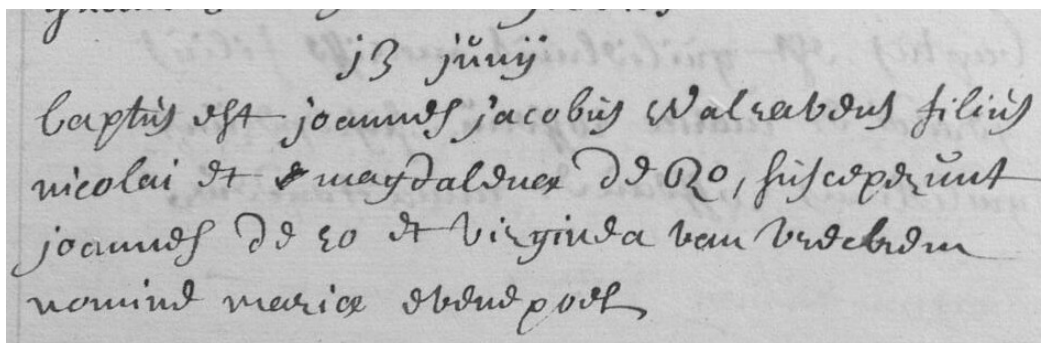 13 junij
baptus est joannes jacobus Walravens filius
nicolai et magdalenae de Ro, susceperunt
joannes de ro et virginea van
nomine maria evenepoel